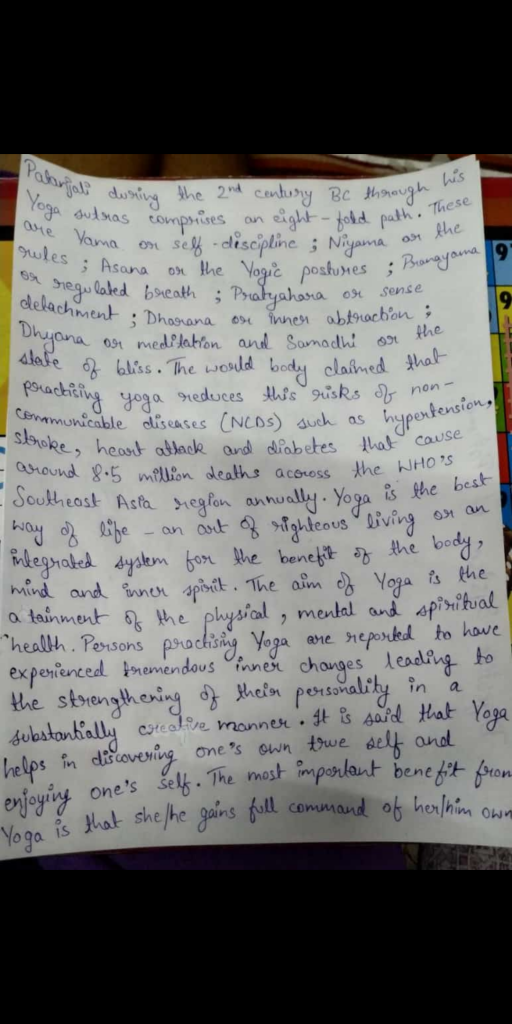 Patanjali during the 2nd century BC through his
Yoga sutras comprises an eight-fold path. These
are Yama or self-discipline; Niyama or the
rules; Asana or the Yogic postures; Pranayama
or regulated breath; Pratyahara or sense
detachment; Dharana or inner abtraction;
Dhyana or meditation and Samadhi or the
state of bliss. The world body claimed that
practising yoga reduces this risks of non-
communicable diseases (NCDs) such as hypertension,
stroke, heart attack and diabetes that cause
around 8.5 million deaths acoross the WHO's
Southeast Asia region annually. Yoga is the best
way of life - an art of righteous living or an
integrated system for the benefit of the body,
mind and inner spirit. The aim of Yoga is the
a tainment of the physical, mental and spiritual
health. Persons practising Yoga are reported to have
experienced tremendous inner changes leading to
the strengthening of their personality in a
substantially creative manner. It is said that Yoga
helps in discovering one's own true self and
enjoying one's self. The most important benefit from
Yoga is that she/he gains full command of her/him own
9
9